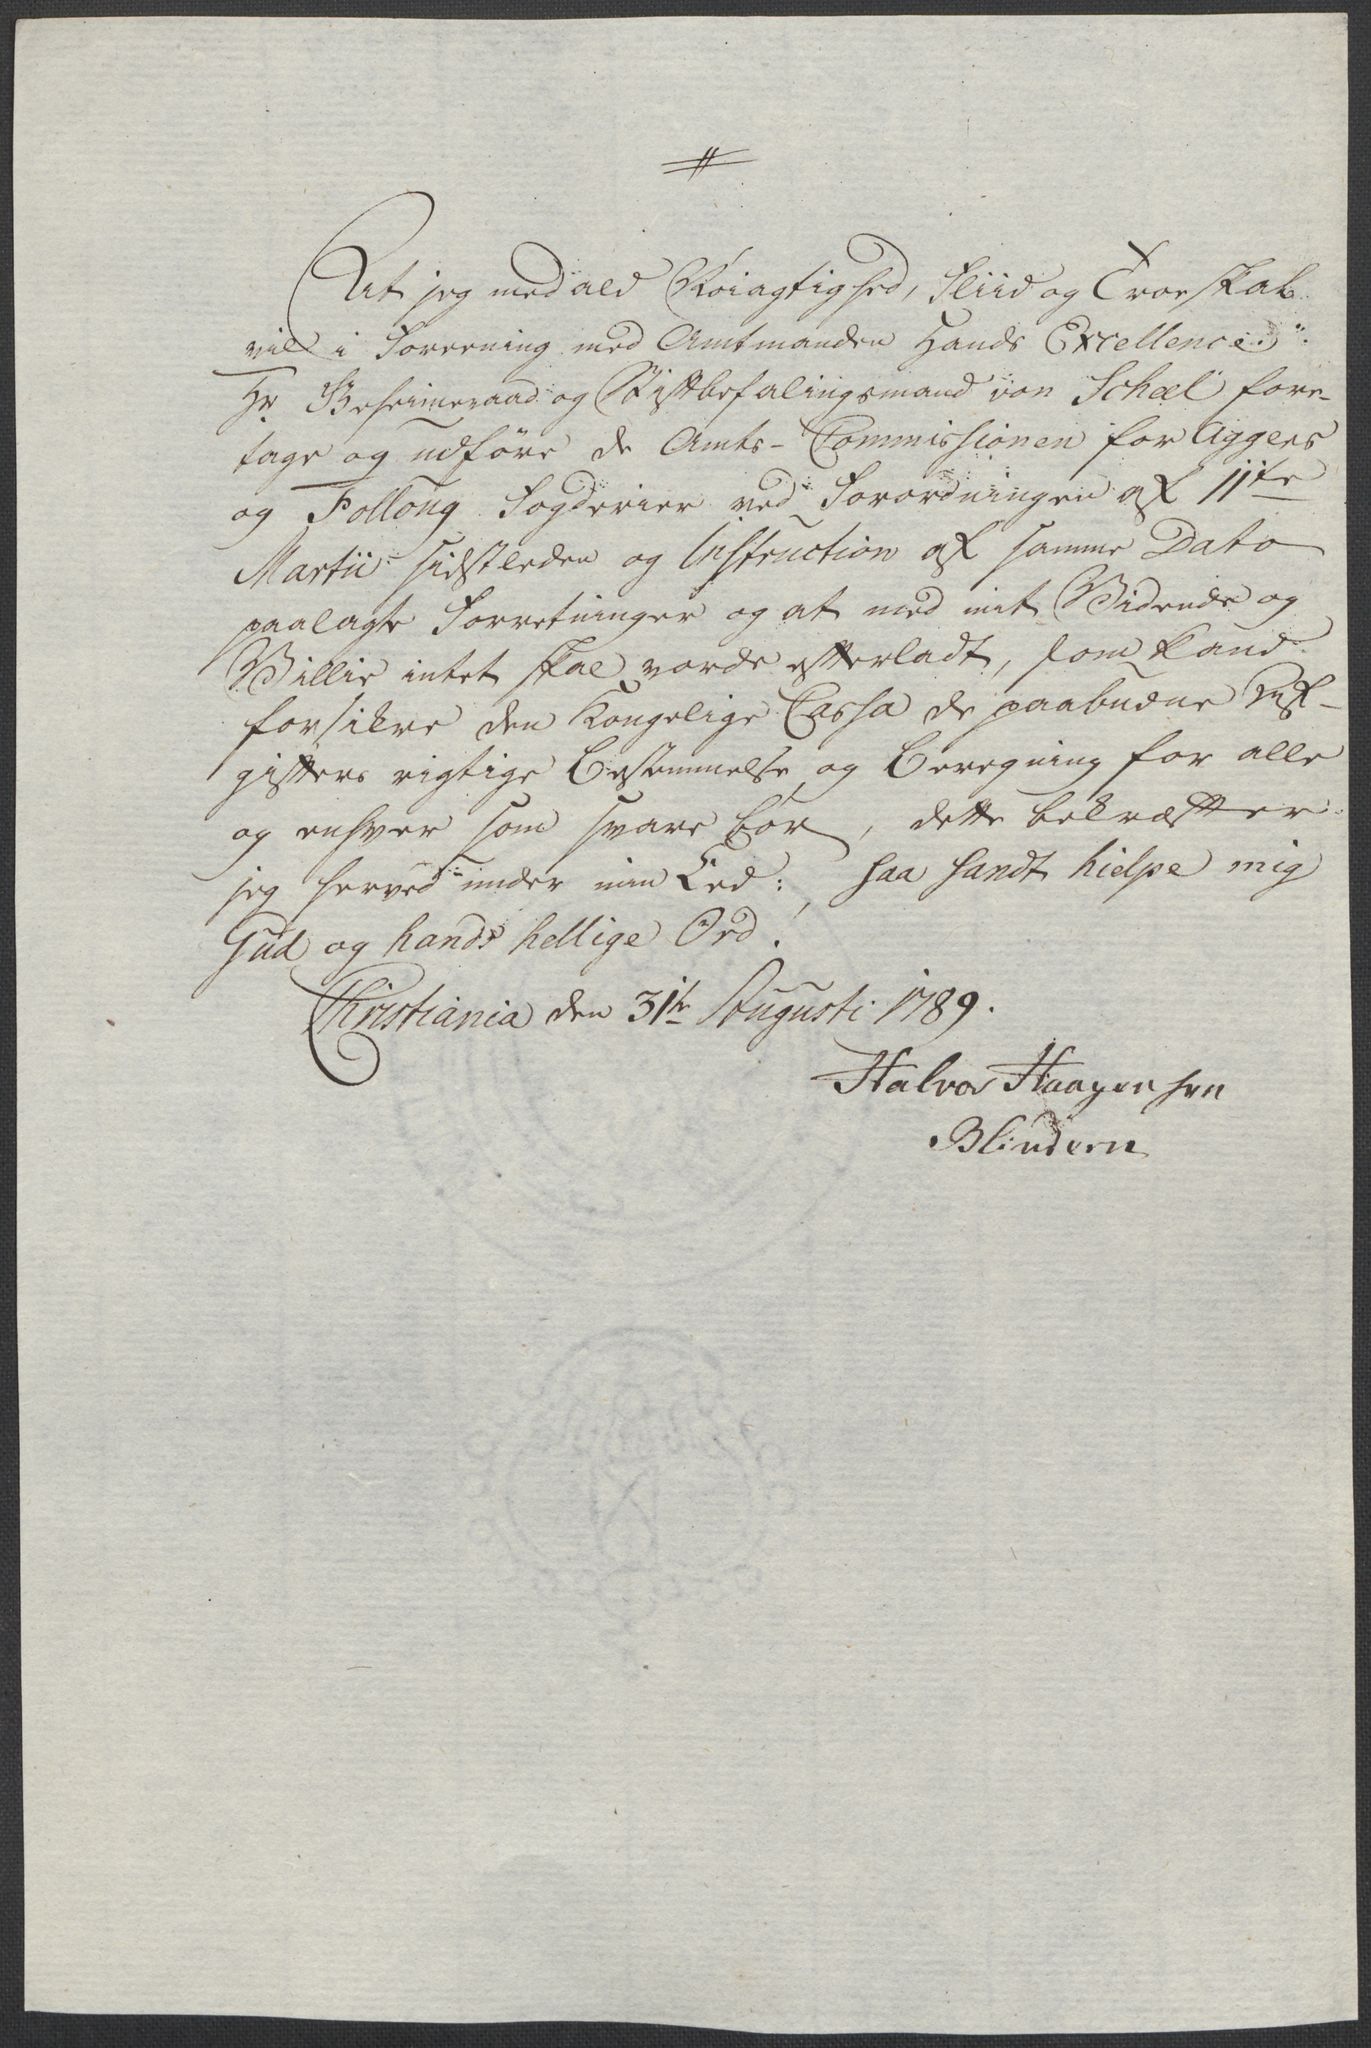 At jeg med ald Nöiagtighed, Fliid og Troeskab
vil i Foreening med Amtmanden Hands Excellence
Hr Geheimeraad og Stiftbefalingsmand von Scheel fore-
tage og udføre de Amts-Commissionen for Aggers
og Folloug Fogderier ved Forordningen af 11te
Martii sidstleden og Instruction af samme Dato
paalagte Forretninger og at med mit Vidende og
Villie intet skal vorde efterladt, som kand
forsikre den Kongelige Cassa de paabudne Af-
gifters rigtige Bestemmelse og Beregning for alle
og enhver som svare bör, dette bekræfter
jeg herved under min Eed: saa sandt hielpe mig
Gud og hands hellige Ord!
Christiania den 31te Augusti 1789.
Halvor Haagensen
Blindern